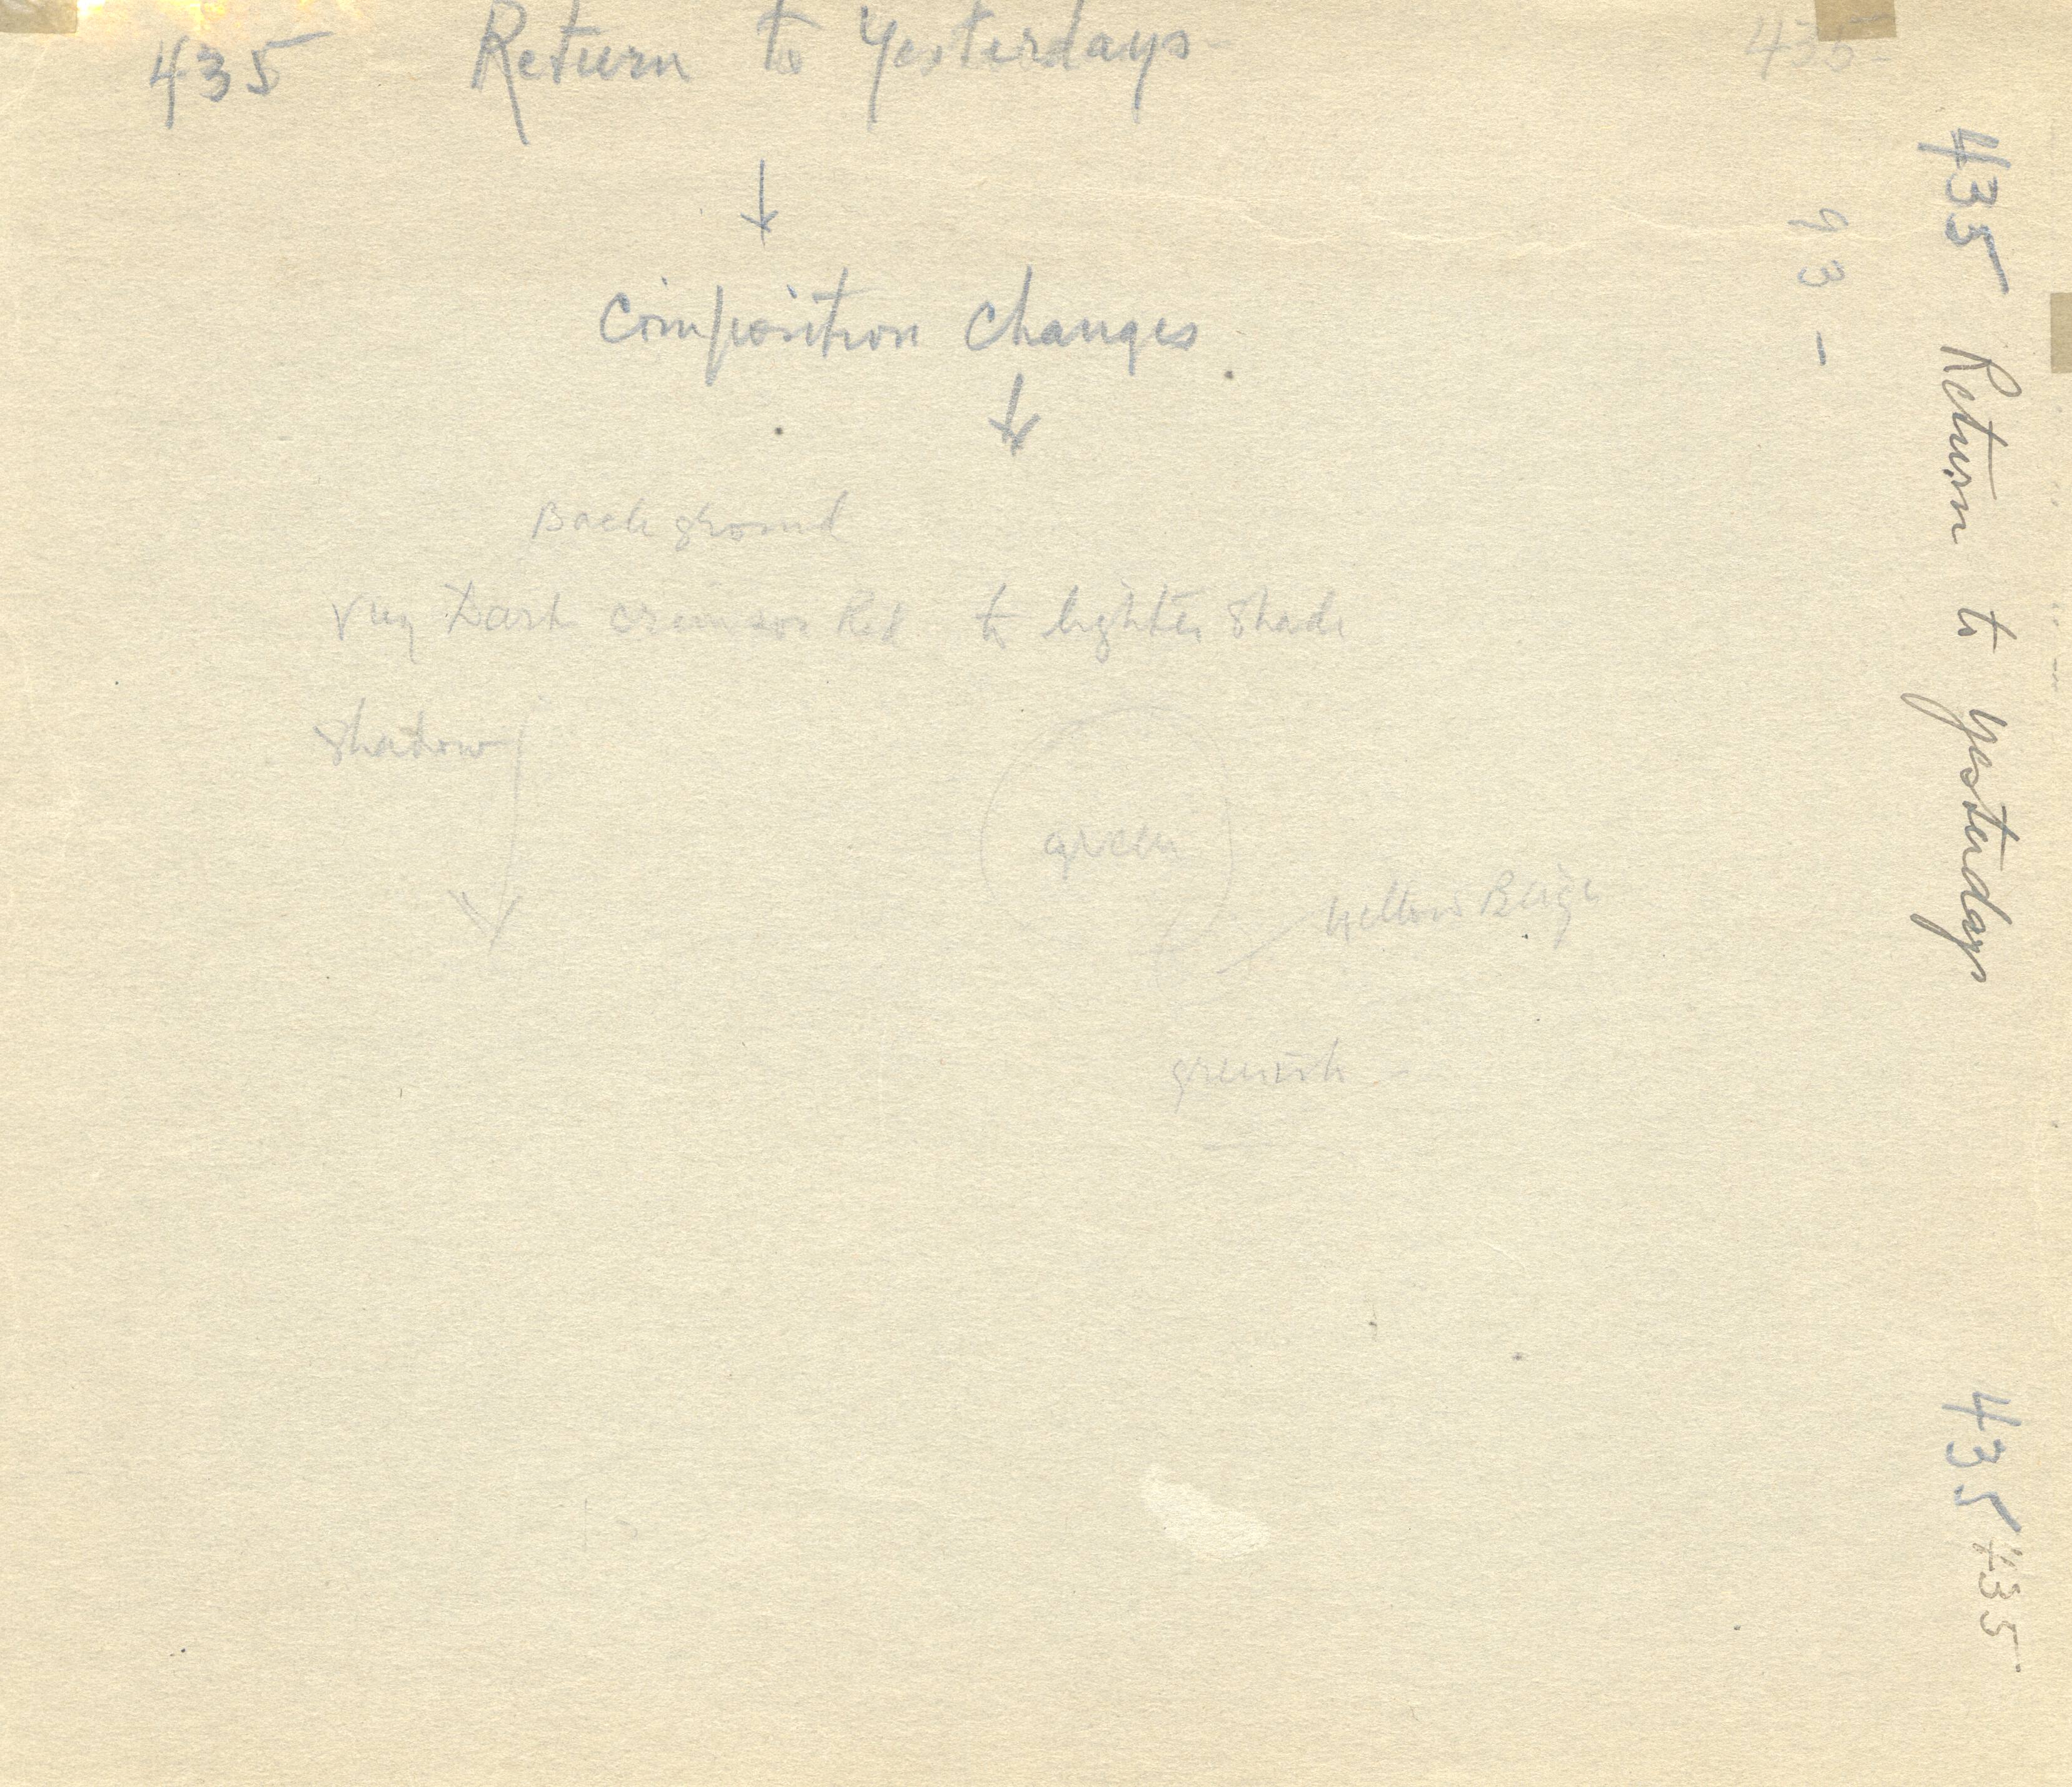 435 Return to Yesterdays
435
Composition Changes
Back ground
Very Dark crimson Red to lighter Shade
Shadow
green
Yellow Beige
greenish
93 -
435 Return to yesterdays
435
435